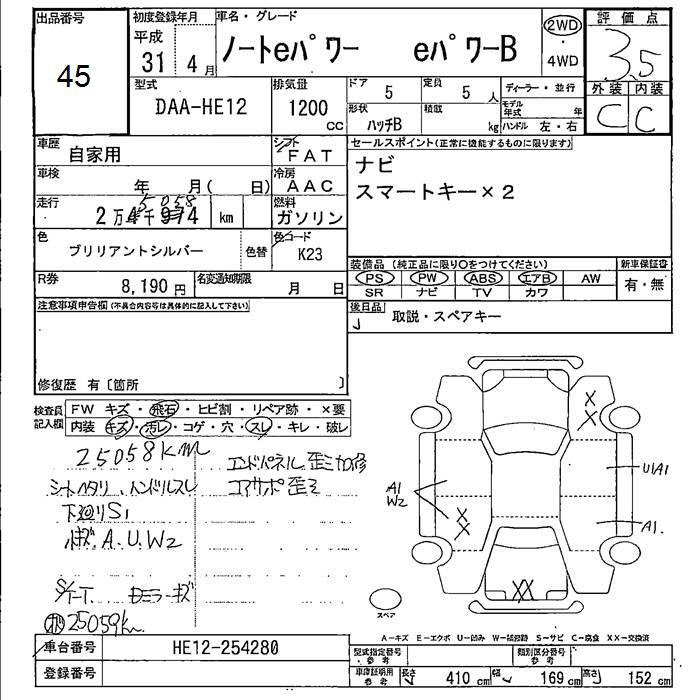 出品番号
45
初度登録年月
平成
31 4 月
車名・グレード
ノートeパワー eパワーB
2WD
・
4WD
評価点
3.5
外装 内装
C C
型式
DAA-HE12
排気量
1200
cc
ドア 5
定員 5 人
形状 ハッチB
積載 kg
ディーラー・並行
モデル年式 年
ハンドル 左・右
車歴 自家用
シフト FAT
車検 年 月( 日)
冷房 AAC
走行 2万4千974 km
5058
燃料 ガソリン
色 ブリリアントシルバー 色替
色コード K23
R券 8,190 円
名変通知期限 月 日
セールスポイント(正常に機能するものに限ります)
ナビ
スマートキー×2
装備品 (純正品に限り○をつけてください)
PS PW ABS エアB AW
SR ナビ TV カワ
新車保証書
有・無
後日品 取説・スペアキー
注意事項申告欄(不具合内容等は具体的に記入して下さい)
修復歴 有〔箇所 〕
検査員記入欄
FW キズ・飛石・ヒビ割・リペア跡・×要
内装 キズ・汚レ・コゲ・穴・スレ・キレ・破レ
25058km
エンドパネル歪ミカ修
シートヘタリ、ハンドルスレ
コアサポ歪ミ
下廻りS1
A.U.W2
キズ
25059km
X
X
U1A1
A1
W2
X
X
A1.
XX
スペア
A-キズ E-エクボ U-凹み W-補修跡 S-サビ C-腐食 XX-交換済
車台番号 HE12-254280
登録番号
型式指定番号 参考
類別区分番号 参考
車庫証明用 参考
長さ 410 cm 幅 169 cm 高さ 152 cm